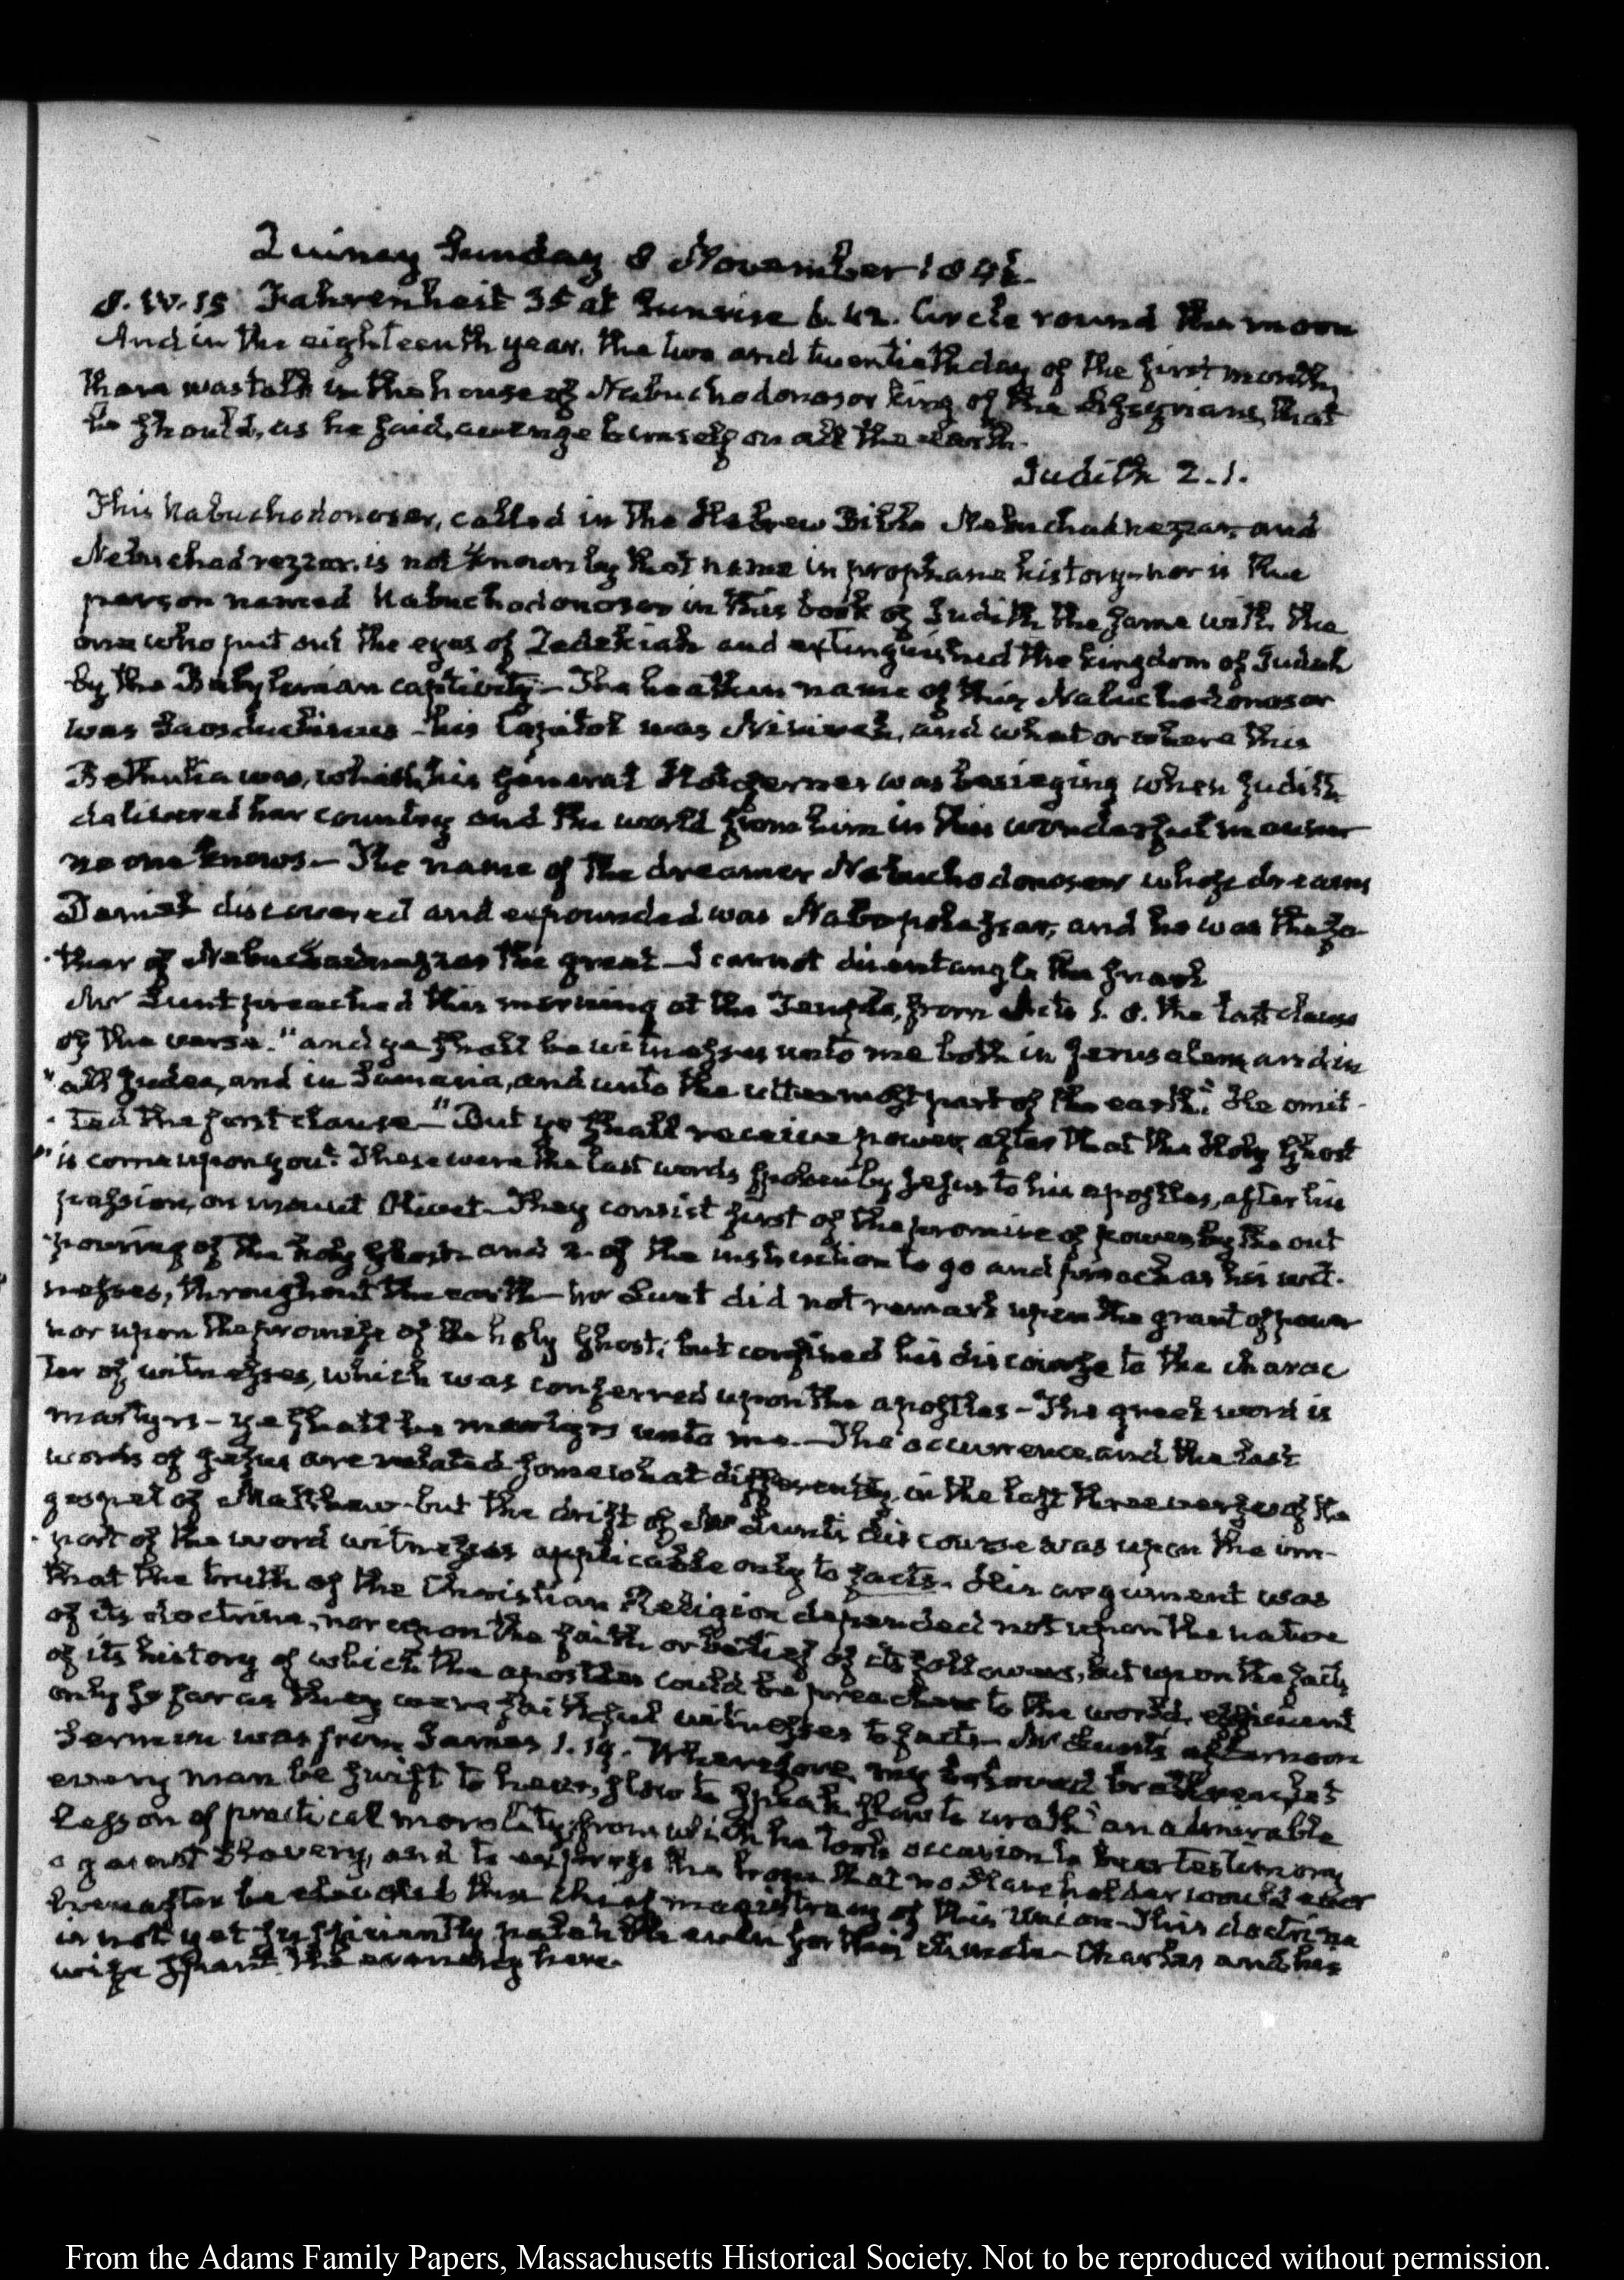 Quincy Sunday 8 November 1846.
S. W. 15 Fahrenheit 35 at Sunrise 6. 42. Circle round the moon
And in the eighteenth year, the two and twentieth day of the first month,
there was talk in the house of Nabuchodonosor king of the Assyrians, that
he should, as he said, avenge himself on all the earth.
Judith 2. 1.
This Nabuchodonosor, called in the Hebrew Bible Nebuchadnezzar, and
Nebuchadrezzar, is not known by that name in prophane history—nor is the
person named Nabuchodonosor in this book of Judith the same with the
one who put out the eyes of Zedekiah and extinguished the kingdom of Judah
by the Babylonian captivity—The heathen name of this Nabuchodonosor
was Saosduchinus—his Capitol was Nineveh, and what or where this
Bethulia was, which his General Holofernes was besieging when Judith
delivered her country and the world from him in this wonderful manner
no one knows—The name of the dreamer Nabuchodonosor whose dreams
Daniel discovered and expounded was Nabopolassar, and he was the fa-
ther of the great—I cannot disentangle the snarl
Mr Lunt preached this morning at the Temple, from Acts 1. 8. the last clause
of the verse. "and ye shall be witnesses unto me both in Jerusalem, and in
"all Judea, and in Samaria, and unto the uttermost part of the earth." He omit-
ted the first clause—"But ye shall receive power, after that the Holy Ghost
"is come upon you". These were the last words spoken by Jesus to his apostles, after his
passion, on mount Olivet—They consist first of the promise of power by the out
pouring of the holy Ghost and 2. of the instruction to go and preach as his wit-
nesses, throughout the earth—Mr Lunt did not remark upon the grant of power
nor upon the promise of the holy Ghost; but confined his discourse to the charac
ter of witnesses, which was conferred upon the apostles—The greek word is
martyrs—ye shall be martyrs unto me.—The occurrence, and the last
words of Jesus are related somewhat differently, in the last three verses of the
gospel of Matthew—but the drift of Mr Lunt's discourse was upon the im-
port of the word witnesses applicable only to facts. His argument was
that the truth of the Christian Religion depended not upon the nature
of its doctrine, nor upon the faith or belief of its followers, but upon the facts
of its history of which the apostles could be preachers to the world, efficient
only so far as they were faithful witnesses to facts—Mr Lunt's afternoon
Sermon was from James 1. 19. Wherefore my beloved brethren, let
every man be swift to hear, slow to speak, slow to wrath" an admirable
Lesson of practical morality, from which he took occasion to bear testimony
against Slavery, and to express the hope that no Slave holder would ever
hereafter be elevated to the chief magistracy of this Union—This doctrine
is not yet sufficiently palatable even for this climate—Charles and his
wife spent the evening here.
From the Adams Family Papers, Massachusetts Historical Society. Not to be reproduced without permission.